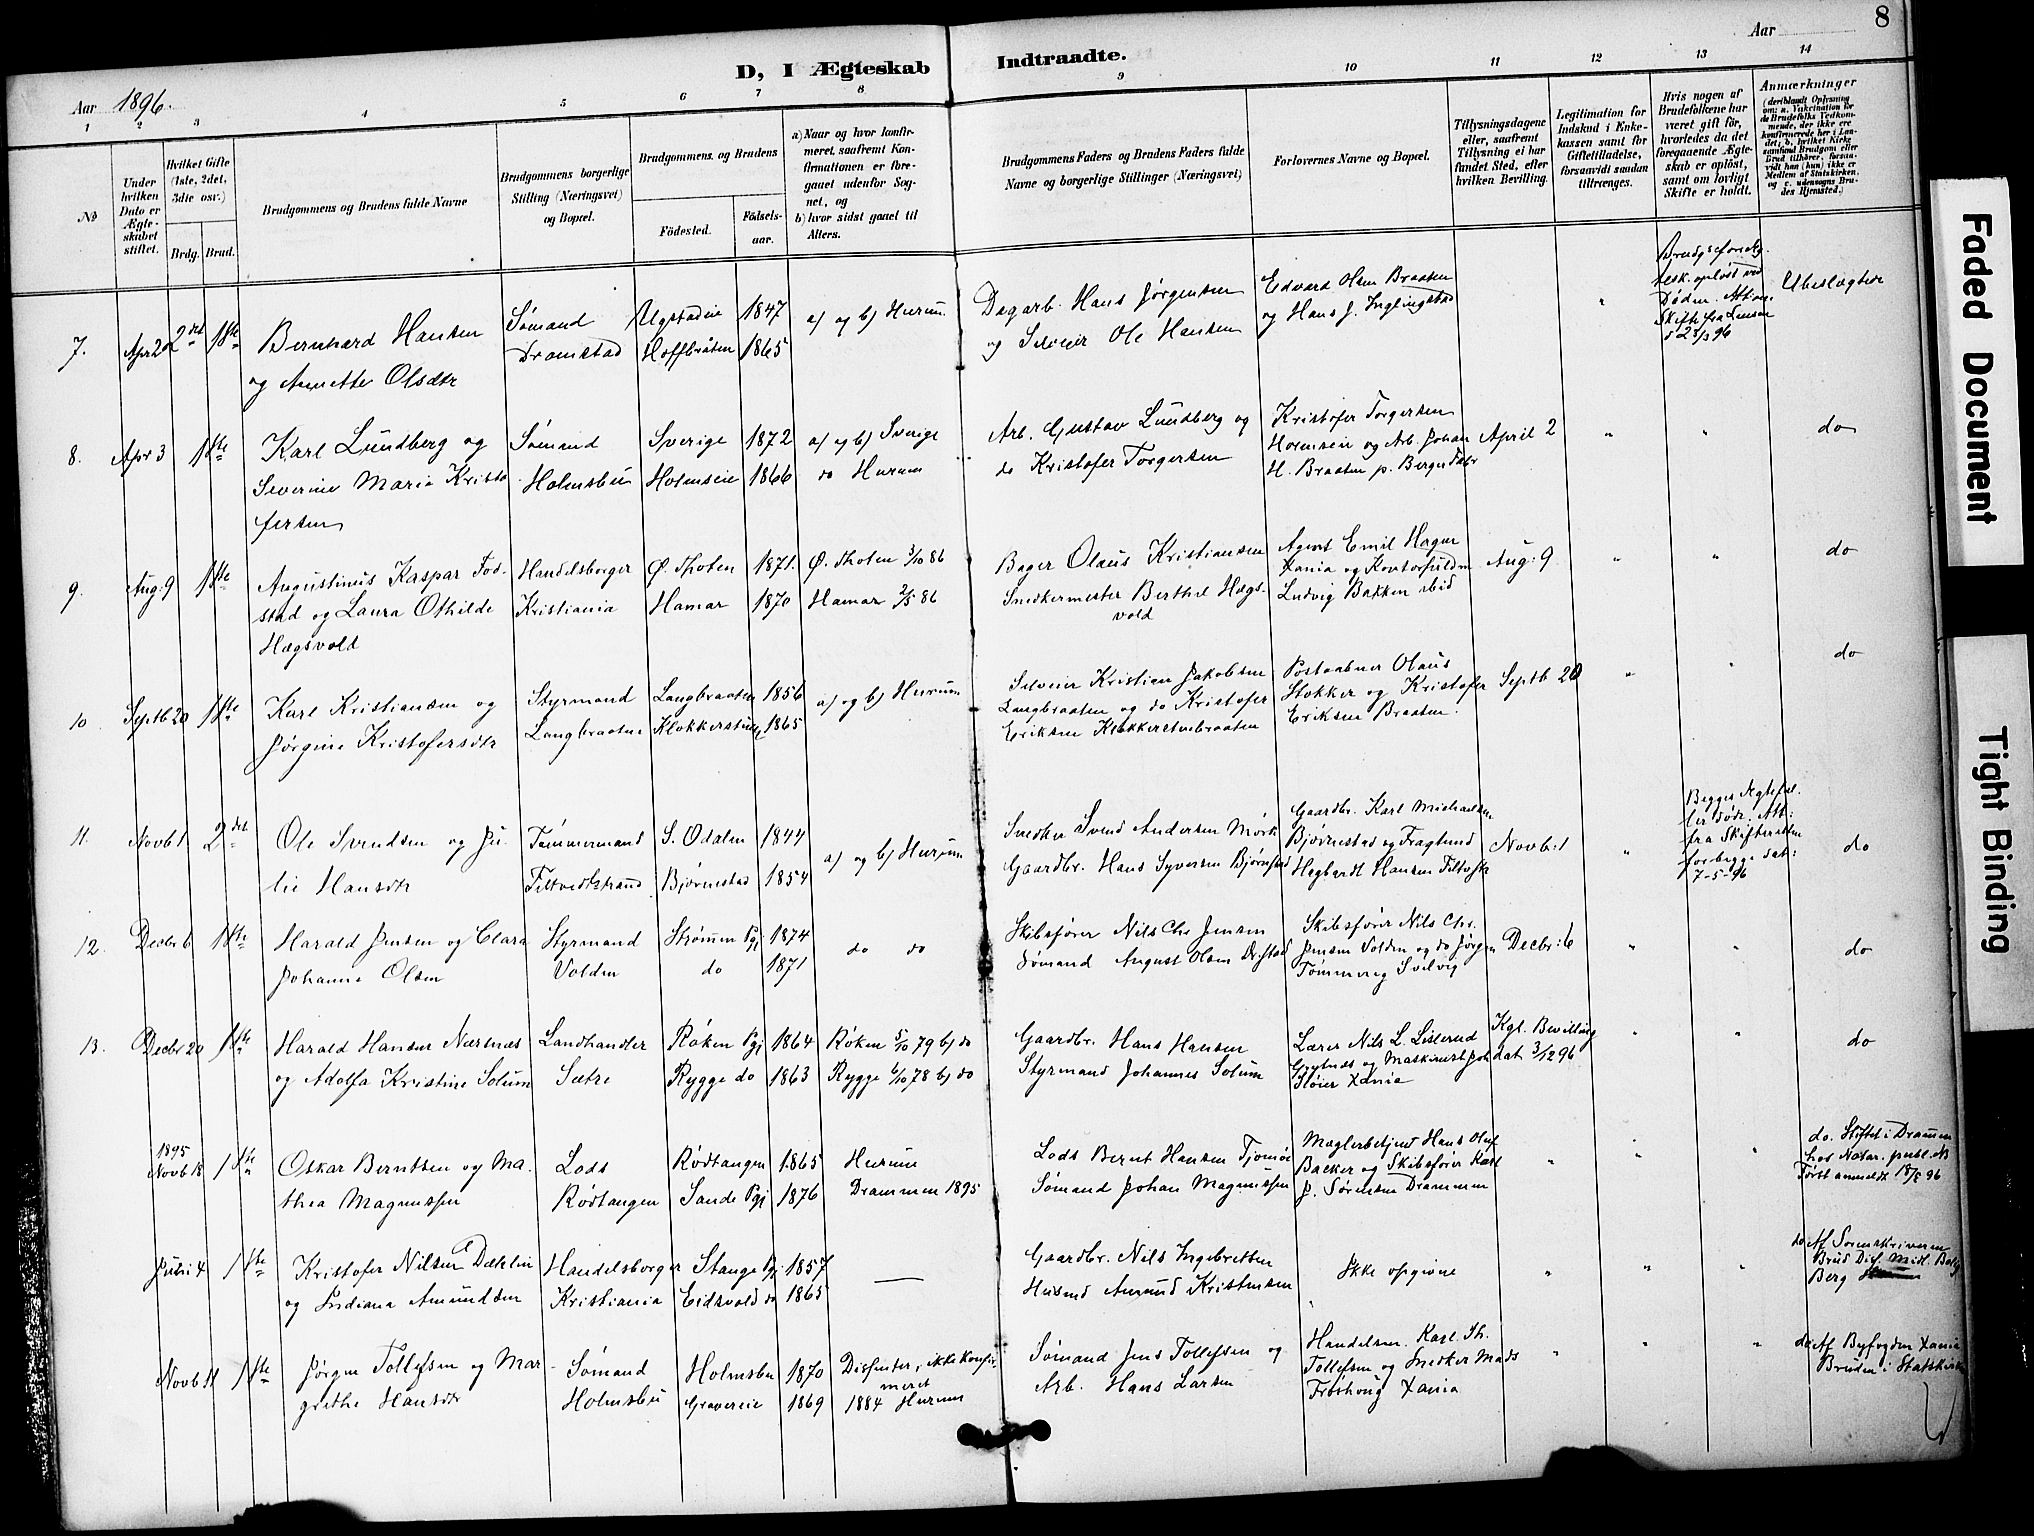 8
D, I Ægteskab Indtraadte.
Aar 1896.
Aar
1 2 3 4 5 6 7 8 9 10 11 12 13 14
No
Under hvilken Dato er Ægteskabet stiftet.
Hvilket Gifte (1ste, 2det, 3die osv.)
Brdg. Brud.
Brudgommens og Brudens fulde Navne
Brudgommens borgerlige Stilling (Næringsvei) og Bopæl.
Brudgommens og Brudens
Födested.
Födselsaar.
a) Naar og hvor konfirmeret, saafremt Konfirmationen er foregaaet udenfor Sognet, og
b) hvor sidst gaaet til Alters.
Brudgommens Faders og Brudens Faders fulde Navne og borgerlige Stillinger (Næringsvei)
Forlovernes Navne og Bopæl.
Tillysningsdagene eller, saafremt Tillysning ei har fundet Sted, efter hvilken Bevilling.
Legitimation for Indskud i Enkekassen samt for Giftetilladelse, forsaavidt saadan tiltrænges.
Hvis nogen af Brudefolkene har været gift før, hvorledes da det foregaaende Ægteskab er opløst, samt om lovligt Skifte er holdt.
Anmærkninger
(deriblandt Oplysning om: a. Vakcination for de Brudefolks Vedkommende, der ikke ere konfirmerede her i Landet; b. hvilket Kirkesamfund Brudgom eller Brud tilhører, forsaavidt han (hun) ikke er Medlem af Statskirken, og c. udensogns Brudes Hjemsted.)
7. Apr 2 2det 1ste
Bernhard Hansen
og Annette Olsdtr
Sømand
Dramstad
Ugstadeie 1847
Hoffbråten 1865
a) og b) Hurum.
Dagarb. Hans Jørgensen
og Selveier Ole Hansen
Edvard Olsen Braaten
og Hans J. Inglingstad
"
Døden. Attest
Skifte fra
d 23/3 96
Ubeslægtede
8. Apr 3 1ste
Karl Lundberg og
Severine Maria Kristo
fersen
Sømand
Holmsbu
Sverige 1872
Holmseie 1866
a) og b) Sverige
do Hurum
Arb. Gustav Lundberg og
do Kristofer Torgersen
Kristofer Torgersen
og Arb. Johan
H. Braaten p.
April 2
" "
do
9. Aug: 9 1ste
Augustinus Kaspar Fod-
stad og Laura Othilde
Hægsvold
Handelsborger
Kristiania
Ø. Thoten 1871.
Hamar 1870
Ø. Thoten 3/10 86
Hamar 2/5 86
Bager Olaus Kristiansen
Snedkermester Berthel Hægs-
vold
Agent Emil Hagen
Xania og Kontorfuldm
Ludvig Bakken ibid
Aug: 9
" "
do
10. Septb 20 1ste
Karl Kristiansen og
Jørgine Kristofersdtr
Styrmand
Langbraaten
Langbraaten 1856
Klokkerstue 1865
a) og b) Hurum
Selveier Kristian Jakobsen
Langbraaten og do Kristofer
Eriksen Klokkerstuebraaten
Postaabner Olaus
Stokker og Kristofer
Eriksen Braaten.
Septb 20
" "
do
11. Novb 1 2det
Ole Svendsen og Ju-
lie Hansdtr
Tømmermand
Tiltvedtstrand
S. Odalen 1844
Bjørnestad 1854
a) og b) Hurum
Snedker Svend Andersen Mørk
Gaardbr. Hans Syversen Bjørnstad
Gaardbr. Karl Michaelsen
Bjørnestad og Fraglund
Hegbardt Hansen
Novb: 1
"
Begges Ægtefæl.
ler døde. Att:
fra Skifteretten
for begge dat:
7-5-96
do
12. Decbr 6 1ste
Harald Jensen og Clara
Johanne Olsen
Styrmand
Volden
Strømm Pgj 1874
do 1871
do do
Skibsfører Nils Chr Jensen
Sømand August Olsen
Skibsfører Nils Chr.
Jensen Volden og do Jørgen
Tømmerag Svelvig
Decbr: 6
" "
do
13. Decbr 20 1ste
Harald Hansen Nærsnes
og Adolfa Kristine Solum
Landhandler
Sætre
Røken Pgj 1864
Rygge do 1863
Røken 5/10 79 b) do
Rygge 6/10 78 b) do
Gaardbr. Hans Hansen
Styrmand Johannes Solum
Lærer Nils L. Lislerud
og Maskinist Joh
Fløier Xania
Kgl. Bevilling
dat 3/12 96
" "
do
1895
Novb 18 1ste
Oskar Berntsen og Ma-
thea Magnussen
Lods
Rødtangen
Rødtangen 1865
Sande Pgj 1876
Hurum
Drammen 1895
Lods Bernt Hansen Tjømøe
Sømand Johan Magnussen
Mæglerbetjent Hans Oluf
Backer og Skibsfører Karl
J. Sørensen Drammen
" " "
do. Stiftet i Drammen
hos Notar. publ. NB
Først anmeldt 18/5 96
Juni 4 1ste
Kristofer Nilsen Dæhlin
og Indiana Amundsen
Handelsborger
Kristiania
Stange Pgj 1857
Eidsvold do 1865
—
Gaardbr. Nils Ingebretsen
Husmd Amund Kristensen
Ikke opgivne
" " "
do Af Sorenskriveren
Berg
Novb 11 1ste
Jørgen Tollefsen og Mar-
grethe Hansdtr
Sømand
Holmsbu
Holmsbu 1870
Gravereie 1869
Dissenter, ikke konfir-
meret
1884 Hurum
Sømand Jens Tollefsen og
Arb. Hans Larsen
Handelsm. Karl Th.
Tollefsen og Snedker Mads
Frøshoug Xania
" " "
do Af Byfogden Xania
Bruden i Statskirken
Faded Document
Tight Binding